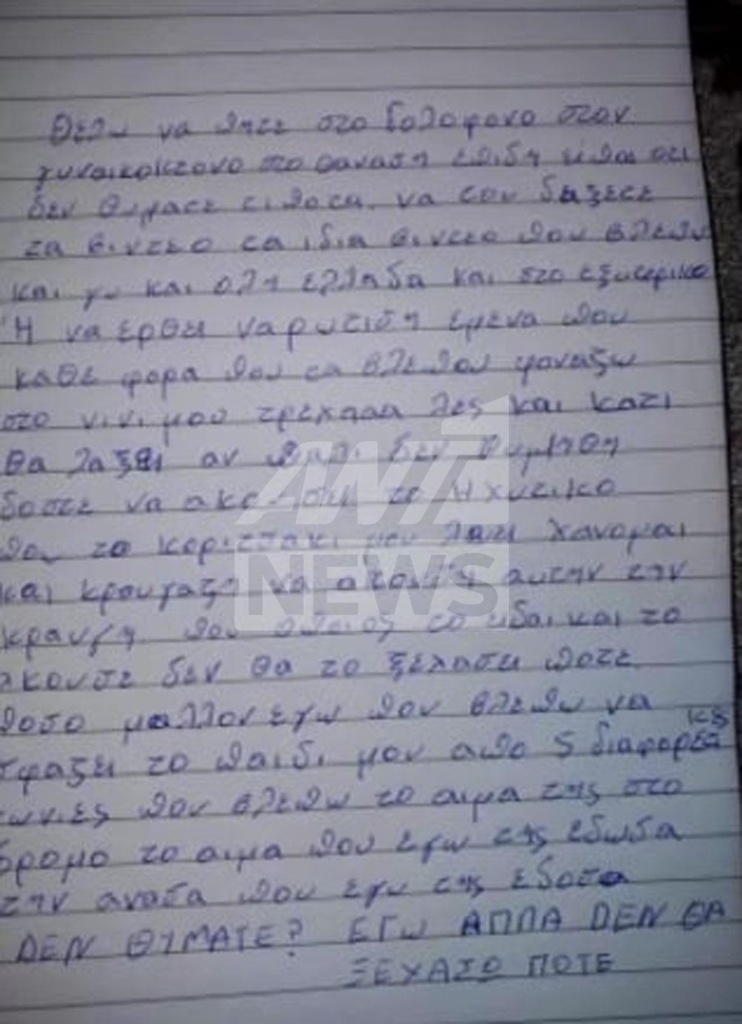 Θελω να πητε στο δολοφονο στον
γυναικοκτονο το θαναση επιδη ειπαι οτι
δεν θυματε τιποτα να του δειξετε
τα βιντεο τα ιδια βιντεο που βλεπω
και γω και ολη ελλαδα και στο εξωτερικο
Ή να ερθει να ρωτιση εμενα που
καθε φορα που τα βλεπου φοναζω
στο νινι μου τρεχααα λες και κατι
θα λαξει αν παλι δεν θυμηθη
δοστε να ακουσει το Ηχυτικο
που το κοριτσακι μου λεει χανομαι
και κραυγαζη να ακουση αυτην την
κραυγη που οποιος το ιδαι και το
ακουσε δεν θα το ξεχασει ποτε
ποσο μαλλον εγω που βλεπω να
σφαζει το παιδι μου απο 5 διαφορετικες
γωνιες που βλεπω το αιμα της στο
δρομο το αιμα που εγω της εδωσα
την ανασα που εγω της εδοσα
ΔΕΝ ΘΥΜΑΤΕ? ΕΓΩ ΑΠΠΑ DEN ΘΑ
ΞΕΧΑΣΩ ΠΟΤΕ
ANT1
NEWS